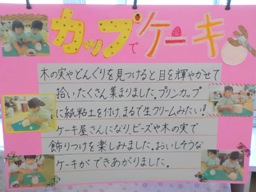 カップでケーキ
木の実やどんぐりを見つけると目を輝かせて
拾いたくさん集まりました。プリンカップ
に紙粘土を付けまるで生クリームみたい!
ケーキ屋さんになりビーズや木の実で
飾りつけを楽しみました。おいしそうな
ケーキができあがりました。